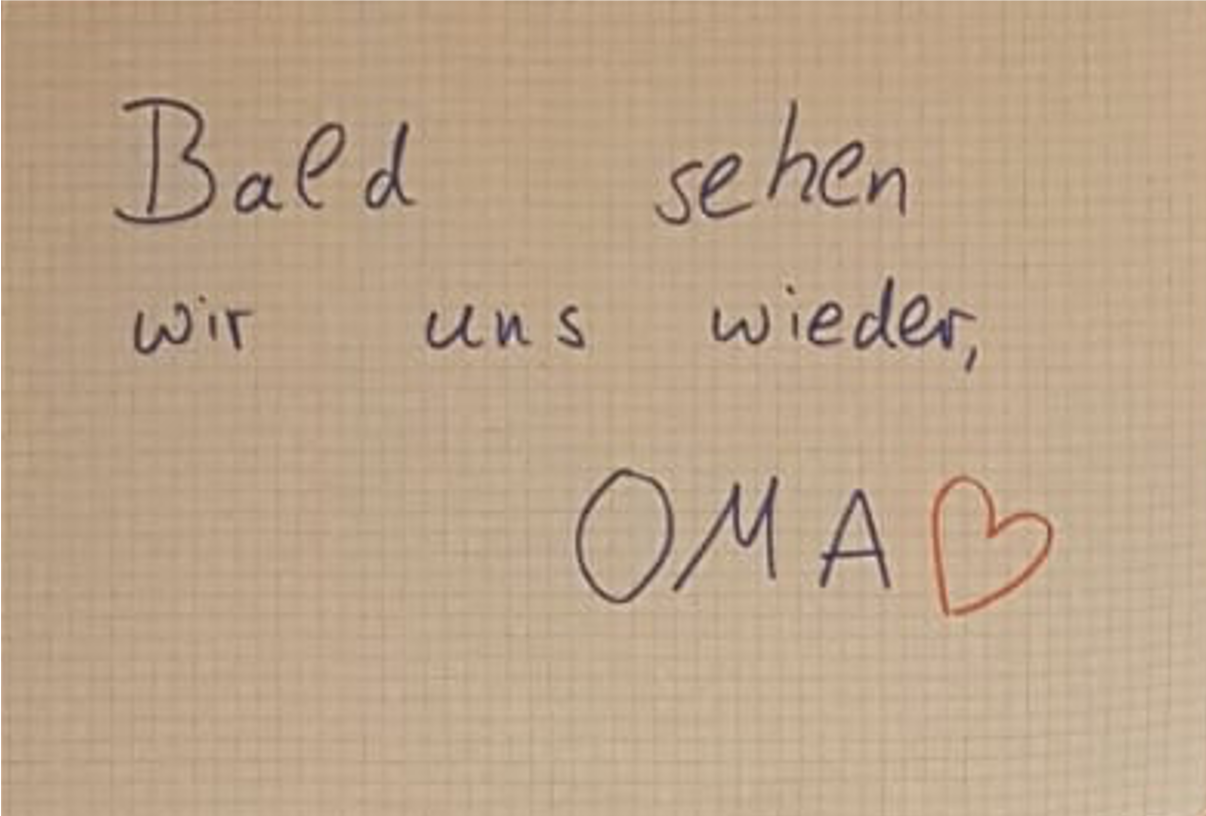 Bald sehen
wir uns wieder,
OMA♡